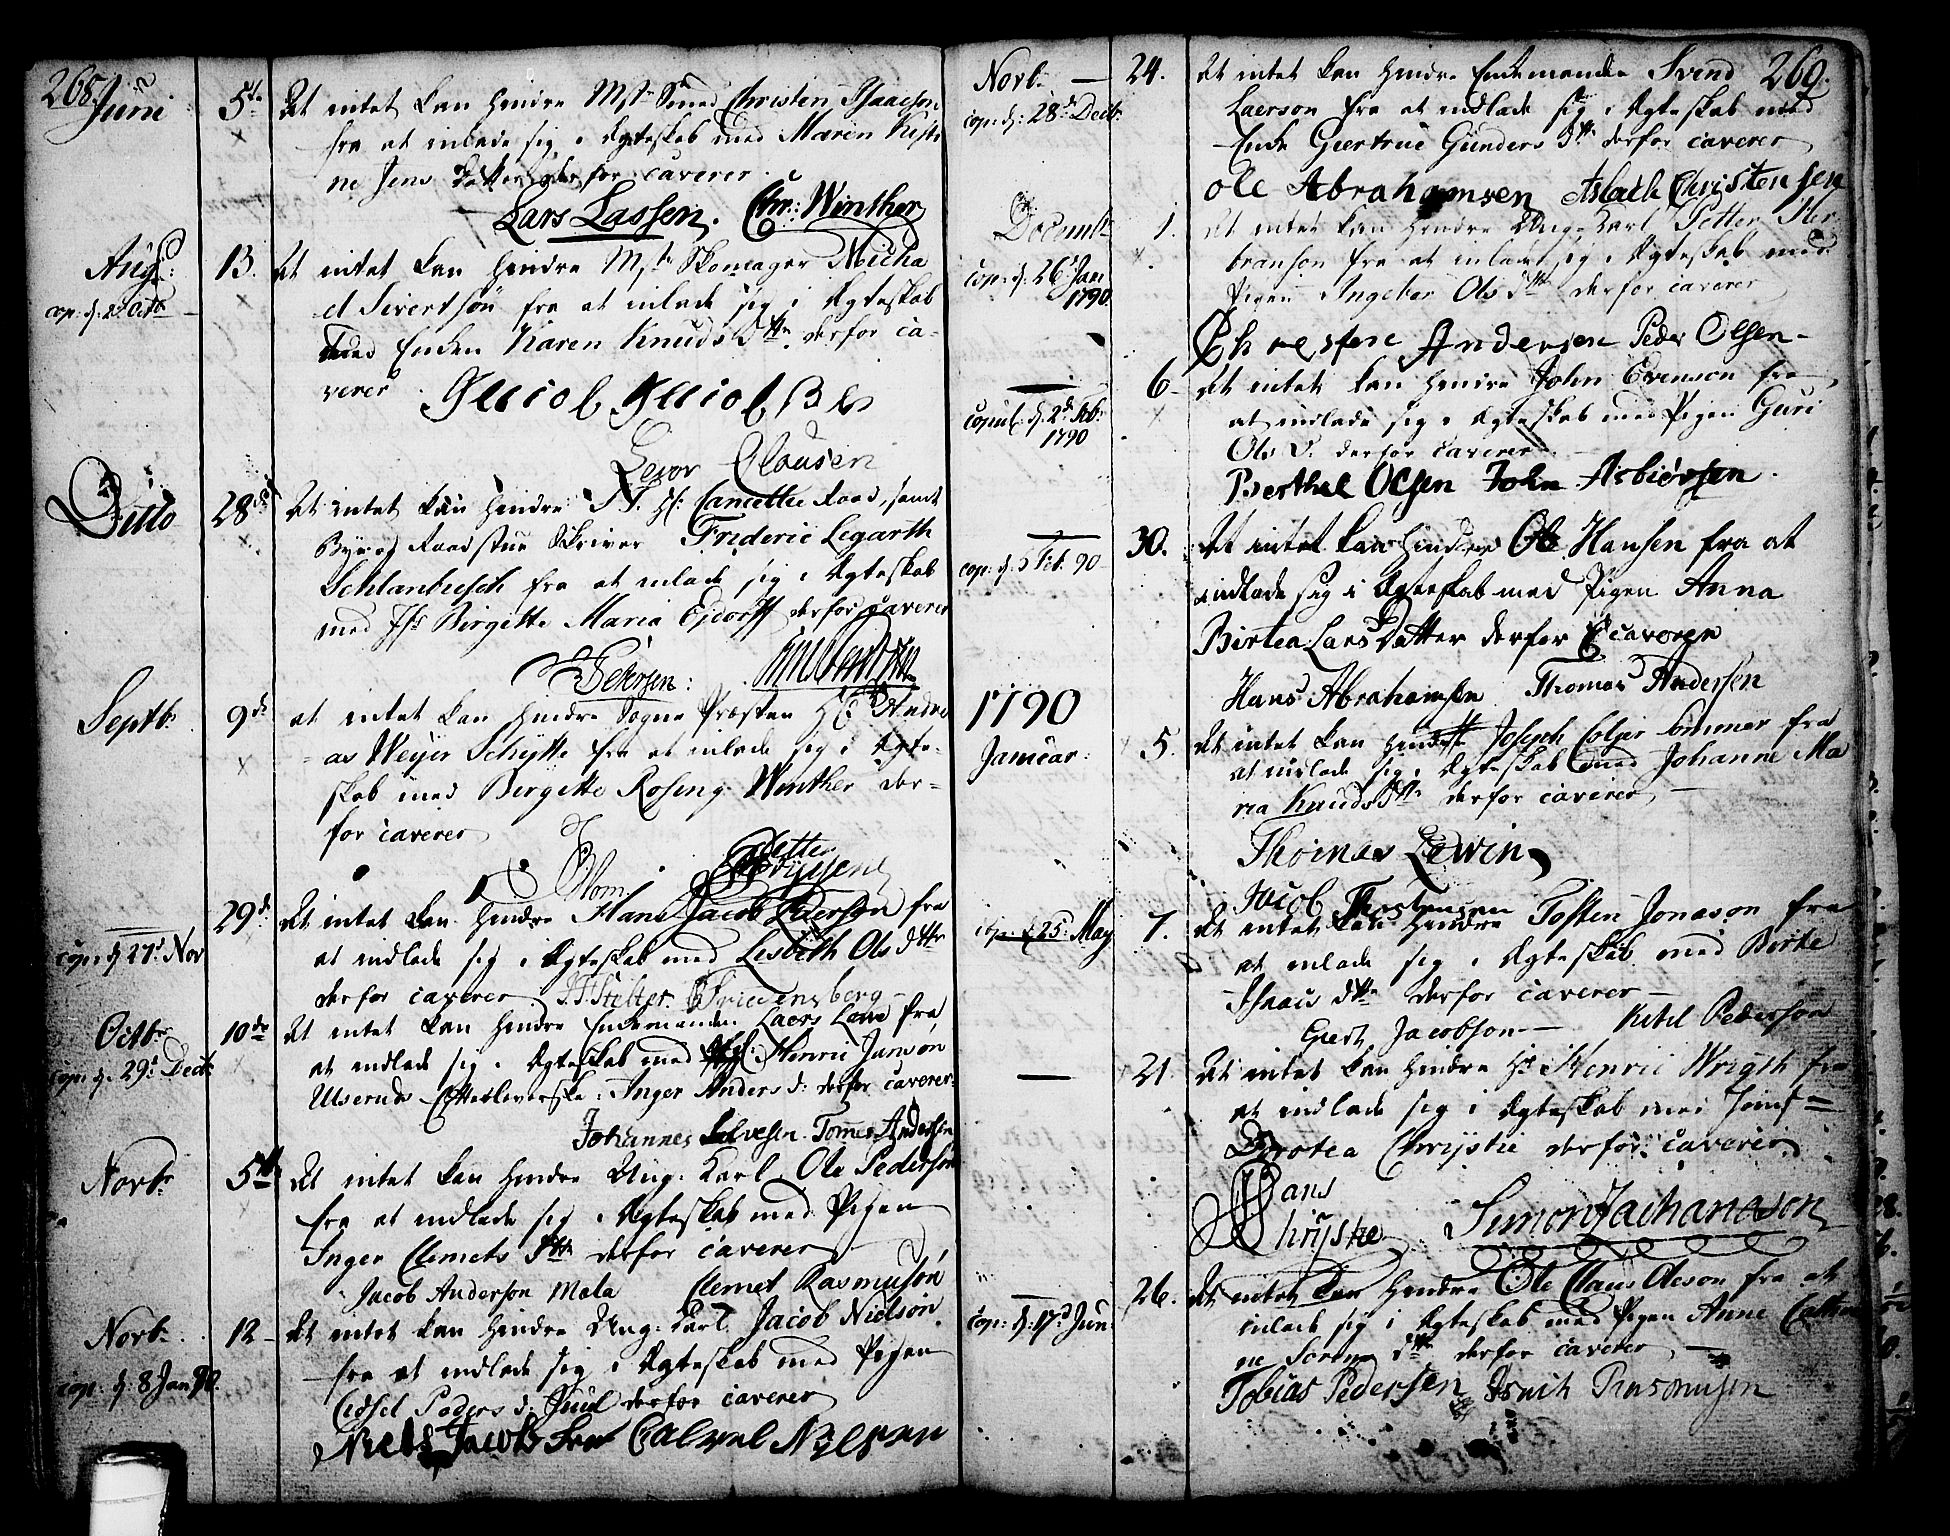 268.
Juni 5te At intet kan hindre Mstr Smed Christen Isaacson
fra at inlade sig i Ægteskab med Maren Kisti
ne Jens Datter derfor caverer
Lars Lassen. Chr: Winther
Aug: 13. At intet kan hindre Mstr Skomager Micha
cop: d. Octb
el Sivertsøn fra at inlade sig i Ægteskab
med Enken Karen Knuds Dttr. derfor ca-
verer
Levor Clausen
Ditto 28de At intet kan hindre S. T. Hr: Cancellie Raad, samt
Bye og Raadstue Skriver Frideric Legarth
Schlanbusch fra at inlade sig i Ægteskab
med Jfr Birgitte Maria Ejdorff derfor caverer
Petersen:
Septb: 9de at intet kan hindre Sogne Præsten Hr Andre
as Weyer Schytte fra at inlade sig i Ægte-
skab med Birgitte Rosing Winther der-
for caverer
Blom
29de At intet kan hindre Hans Jacob Pederson fra
cop: d 27de Nov
at indlade sig i Ægteskab med Lisbeth Ols dttr
derfor caverer
Octbr 10de At intet kan hindre Enkemanden Laers Lowe fra
cop: d. 29de Decb:
at indlade sig i Ægteskab med Henric Janson
Ulseruds Efterleverske: Inger Anders d: derfor caverer
Johannes Halvesen. Tomes Andersen
Novbr 5te At intet kan hindre Ung. Karl Ole Pederson
fra at indlade sig i Ægteskab med Pigen
Inger Clemets Dttr derfor caverer
Jacob Anderson Mola Clemet Rasmusøn
Novb: 12 At intet kan hindre Ung: Karl Jacob Nielson
cop: d 8 Jan 90.
fra at indlade sig i Ægteskab med Pigen
Cidsel Peders d: Juul derfor caverer
Niels Jacobsen
269.
Novb: 24. At intet kan hindre Enkemanden Svend
cop: d: 28de Decb:
Laerson fra at indlade sig i Ægteskab med
Enke Giertrue Gunders Dttr derfor caverer
Ole Abrahamsen Aslach Christensen
Decembr 1. At intet kan hindre Ung. Karl Petter Her
cop: d. 26de Jan 1790
branson fra at inlade sig i Ægteskab med
Pigen Ingebor Ols Dttr derfor caverer
Andersen Peder Olsen
6 At intet kan hindre John Evenson fra
copul: d. 2de Feb: 1790
at indlade sig i Ægteskab med Pigen Guri
Ols D. derfor caverer
Berthel Olsen John Asbiørsen
30. At intet kan hindre Ole Hansen fra at
cop: d. 5 Feb: 90
indlade sig i Ægteskab med Pigen Anna
Birtea Lars Datter derfor caveren
Hans Abrahamsen Thomas Andersen
1790
Januar: 5. At intet kan hindre Joseph Colger Sommer fra
at indlade sig i Ægteskab med Johanne Ma
ria Knuds Dttr derfor caverer
Thomas Lewin
Jacob Thorstensen
7. At intet kan hindre Tosten Jonason fra
cop: d 25: May
at inlade sig i Ægteskab med Birte
Isaacs dttr derfor caverer
Giert Jacobson Kitel Pederson
21. At intet kan hindre Hr Henric Wrigth fra
at indlade sig i Ægteskab med Jomf-
Dorotea Chrystie derfor caverer
Hans
Chrystie Simon Zachariason
26. At intet kan hindre Ole Claus Oleson fra at
cop: d. 17de Jun:
inlade sig i Ægteskab med Pigen Anne Cathri
ne Sørens dttr derfor caverer
Tobias Pedersen